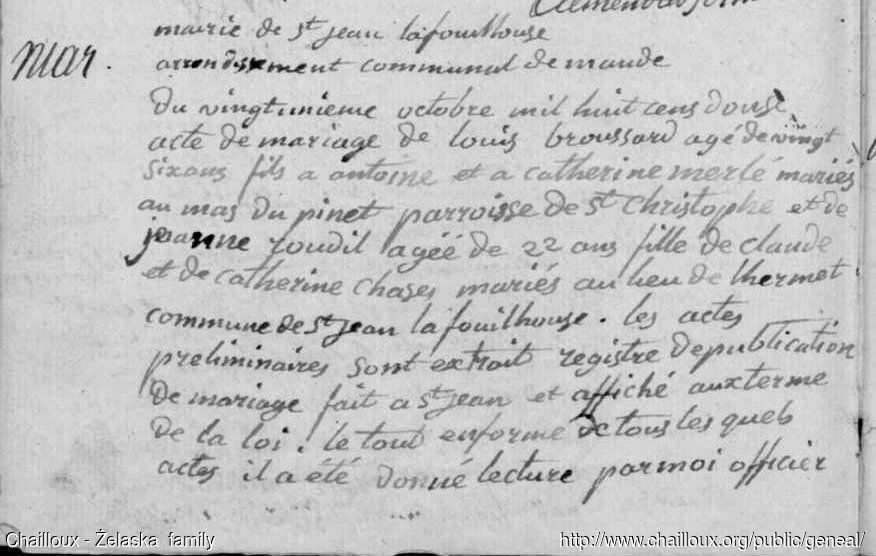 mairie de st jean lafouilhouse
mar.
arrondissement communal de mande
Du vingtunieme octobre mil huit cens douse
acte de mariage de louis broussard agé de vingt
sixans fils a antoine et a catherine merlé mariés
au mas du pinet parroisse de st christophe et de
jeanne roudil agéé de 22 ans fille de claude
et de catherine chases mariés au lieu de lhermet
commune de st jean lafouilhouse. les actes
preliminaires sont extrait registre de publication
de mariage fait a st jean et affiché aux terme
de la loi. le tout enformé de tous les quels
actes il a été donné lecture par moi officier
Chailloux - Żelaska family
http://www.chailloux.org/public/geneal/